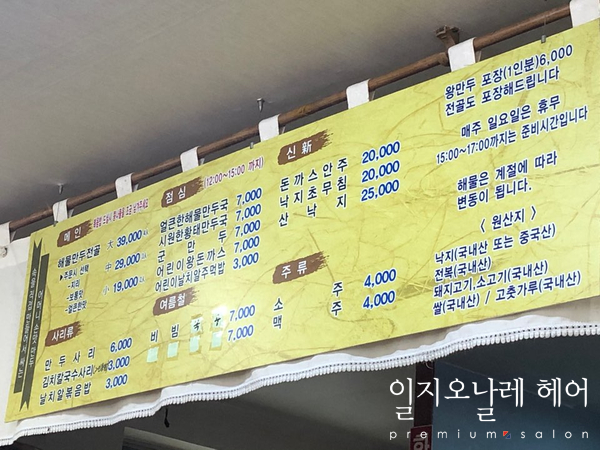 메인
해물만두전골 大 39,000
주문시 선택 中 29,000
-지리 小 19,000
-보통맛
-얼큰한맛
사리류
만두사리 6,000
김치칼국수사리 3,000
날치알볶음밥 3,000
점심 (12:00~15:00 까지)
얼큰한해물만두국 7,000
시원한황태만두국 7,000
군만두 7,000
어린이왕돈까스 7,000
어린이날치알주먹밥 3,000
여름철
비빔 7,000
7,000
신 新
돈까스안주 20,000
낙지초무침 20,000
산낙지 25,000
주류
소주 4,000
맥주 4,000
왕만두 포장(1인분)6,000
전골도 포장해드립니다
매주 일요일은 휴무
15:00~17:00까지는 준비시간입니다
해물은 계절에 따라
변동이 됩니다.
< 원산지 >
낙지(국내산 또는 중국산)
전복(국내산)
돼지고기,소고기(국내산)
쌀(국내산) / 고춧가루(국내산)
일지오날레 헤어
premium salon